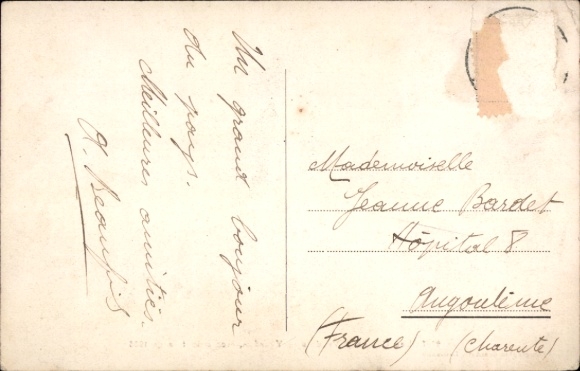 Un grand bonjour
du pays.
Meilleures amitiés.
A. Beaufils
Mademoiselle
Jeanne Bardet
Hôpital 8
Angoulême
(France) (Charente)